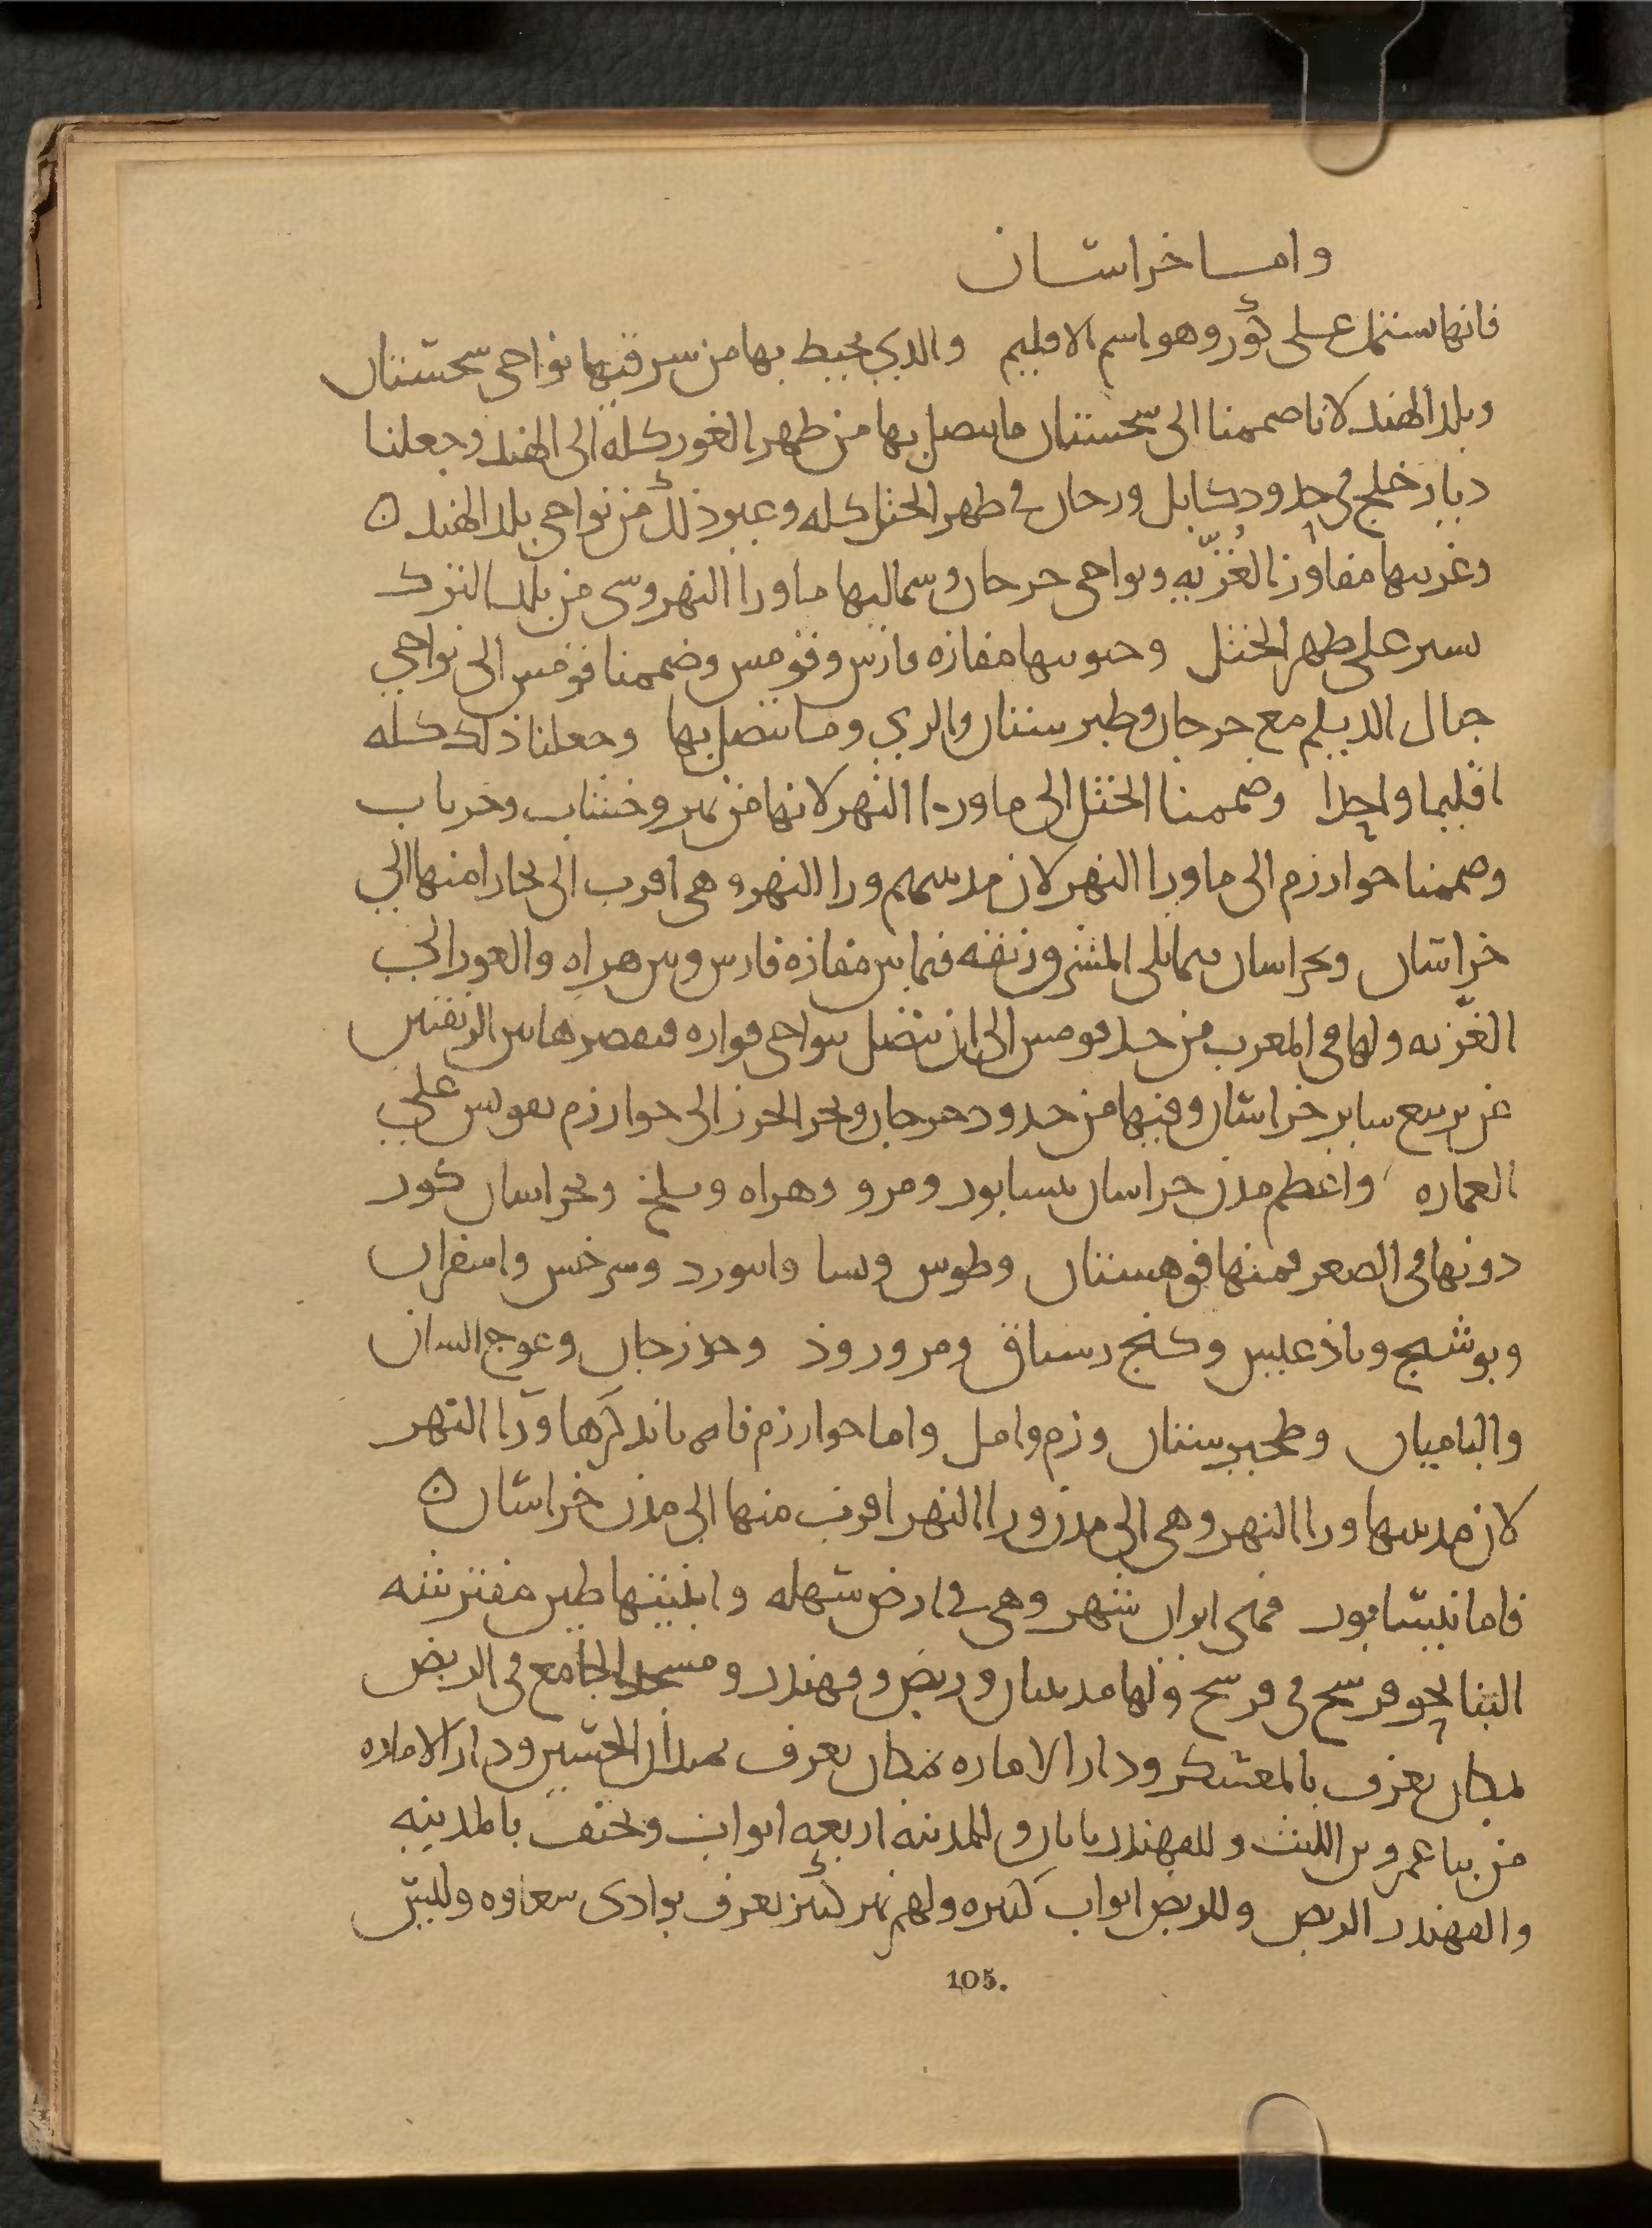 واما خراسان
فانها تشتمل على كور وهو اسم الاقليم والذي يحيط بها من شرقيها نواحي سجستان
وبلد الهند لانا ضممنا الى سجستان ما يتصل بها من ظهر الغور كله الى الهند وجعلنا
ديار خلج في حدود كابل ووخان في ظهر الختل كله وغير ذلك من نواحي بلد الهند ه
وغربيها مفاوز الغزيه ونواحي جرجان وشماليها ماورا النهر وشي من بلد الترك
يسير على ظهر الختل وجنوبيها مفازه فارس وقومس وضممنا قومس الى نواحي
جبال الديلم مع جرجان وطبرستان والري وما يتصل بها وجعلنا ذلك كله
اقليما واحدا وضممنا الختل الى ماورا النهر لانها من نهر وخشاب وخرياب
وضممنا خوارزم الى ماورا النهر لان مدينتهم ورا النهر وهي اقرب الى بخارا منها الى
خراسان وبخراسان مما يلي المشرق زنقه فيما بين مفازه فارس وبين هراه والغور الى
الغزيه ولها في المغرب من حد قومس الى ان يتصل بنواحي فراوه فيقصر هاتين الزنقتين
عن تربيع ساير خراسان وفيها من حدود جرجان وبحر الخزر الى خوارزم تقويس على
العماره واعظم مدن خراسان نيسابور ومرو وهراه وبلخ وبخراسان كور
دونها في الصغر فمنها قوهستان وطوس ونسا وابيورد وسرخس واسفزار
وبوشنج وباذغيس وكنج رستاق ومروروذ وجوزجان وغرج الشار
والباميان وطخيرستان وزم وامل واما خوارزم فانا نذكرها ورا النهر
لان مدينتها ورا النهر وهي الى مدن ورا النهر اقرب منها الى مدن خراسان ه
فاما نيسابور فهي ابران شهر وهي في ارض سهله وابنيتها طين مفترشه
البنا نحو فرسخ في فرسخ ولها مدينتان وربض وقهندز ومسجد الجامع في الربض
بمكان يعرف بالمعسكر ودار الاماره بمكان يعرف بميدان الحسين ودار الاماره
من بنا عمرو بن الليث وللقهندز بابان وللمدينه اربعه ابواب ويحتف بالمدينه
والقهندز الربض وللربض ابواب كثيره ولهم نهر كبير يعرف بوادي سغاوه وليس
105.